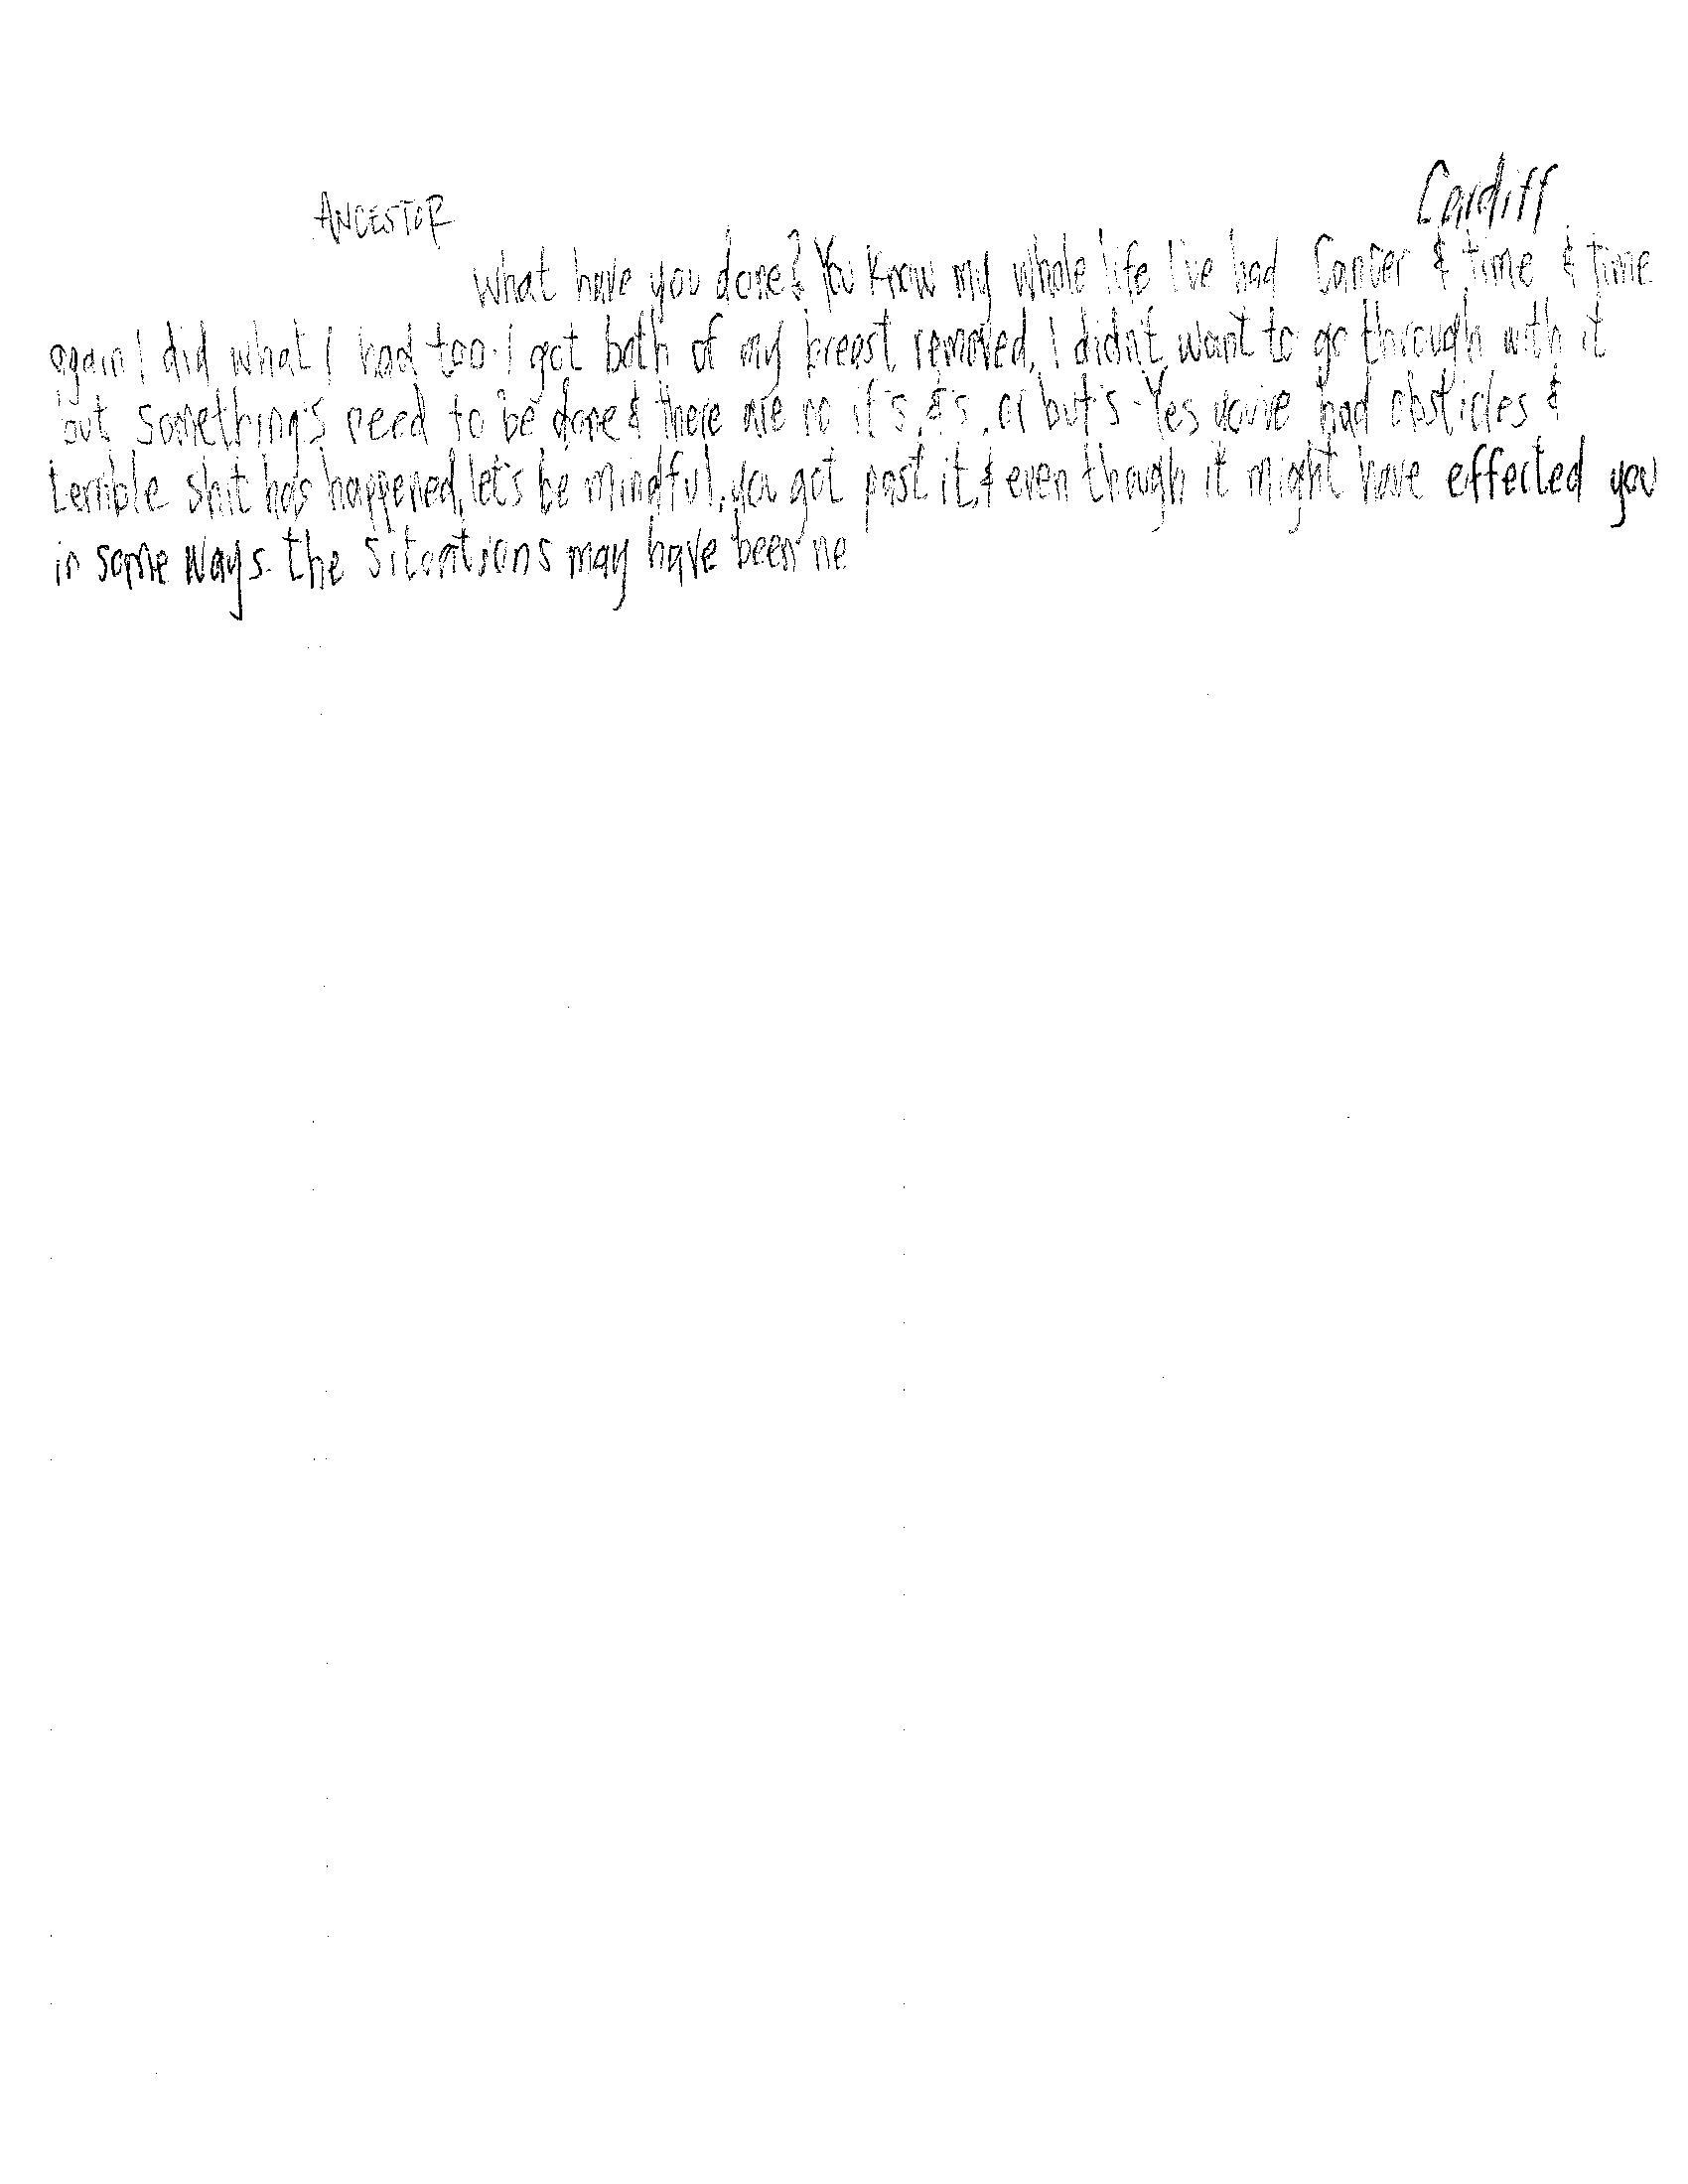 Cardiff
ANCESTOR
What have you done? You know my whole life I've had Cancer & time & time
again I did what I had too. I got both of my breast removed, I didn't want to go through with it
but something's need to be done & there are no if's, &'s, or but's - Yes you've had obsticles &
terrible shit has happened, let's be mindful, you got past it, & even though it might have effected you
in some ways the situations may have been ne